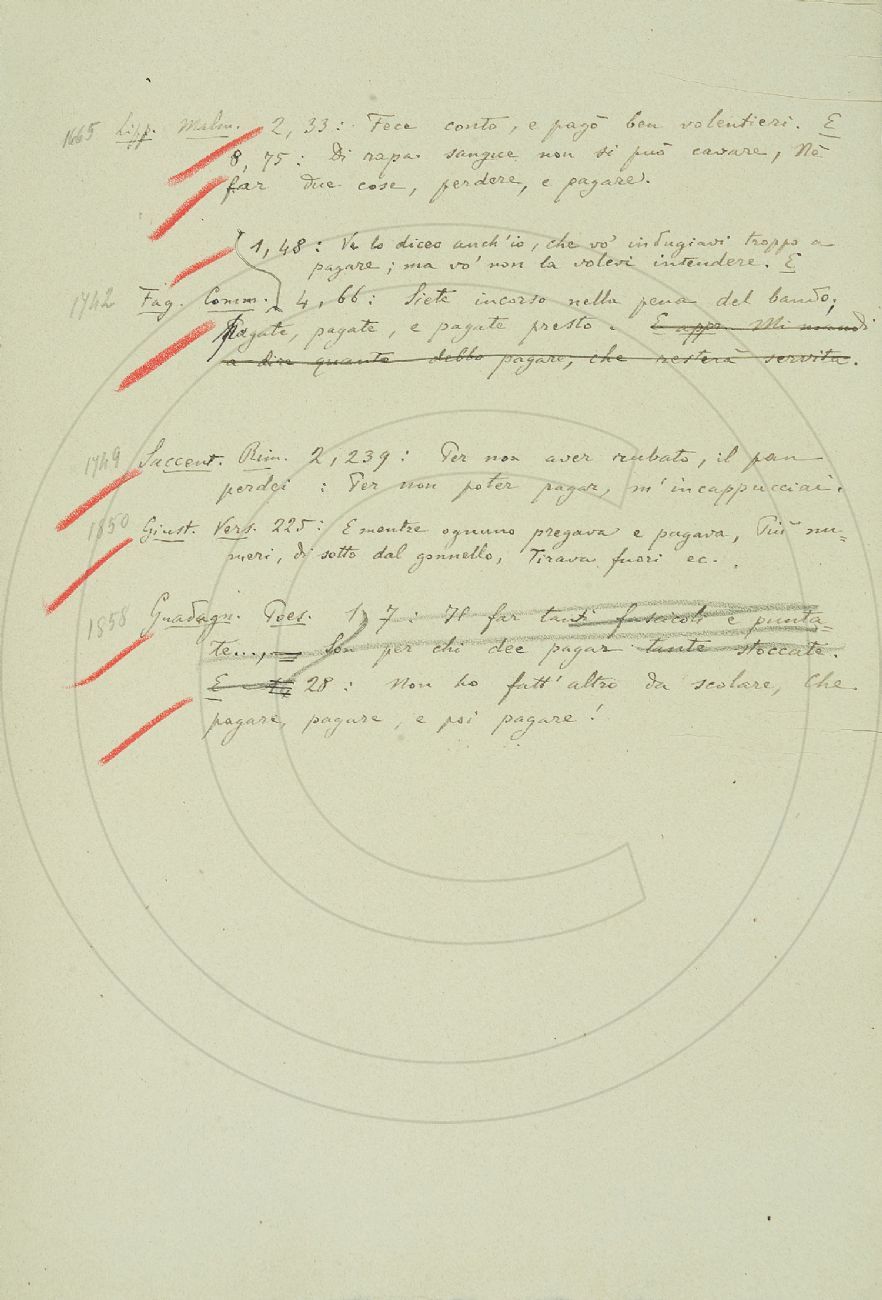 1665 Lipp. Malm. 2, 33: Fece conto, e pagò ben volentieri. E
8, 75: Di rapa sangue non si può cavare, Nè
far due cose, perdere, e pagare.
1, 48: Ve lo diceo anch'io, che vo' indugiavi troppo a
pagare; ma vo' non la volevi intendere. E
1742 Fag. Comm. 4, 66: Siete incorso nella pena del bando;
Pagate, pagate, e pagate presto. E appr. Mi mandi
a dire quanto debbo pagare, che resterà servita.
1749 Saccent. Rim. 2, 239: Per non aver rubato, il pan
perdei: Per non poter pagar, m'incappucciai.
1850 Giust. Vers. 225: E mentre ognuno pregava e pagava, Più nu=
meri, di sotto dal gonnello, Tirava fuori ec.
1858 Guadagn. Poes. 1, 7: Il far tanti fusicoli e punta=
te..., Son per chi dee pagar tante stoccate.
E 28: Non ho fatt'altro da scolare, Che
pagare, pagare, e poi pagare!